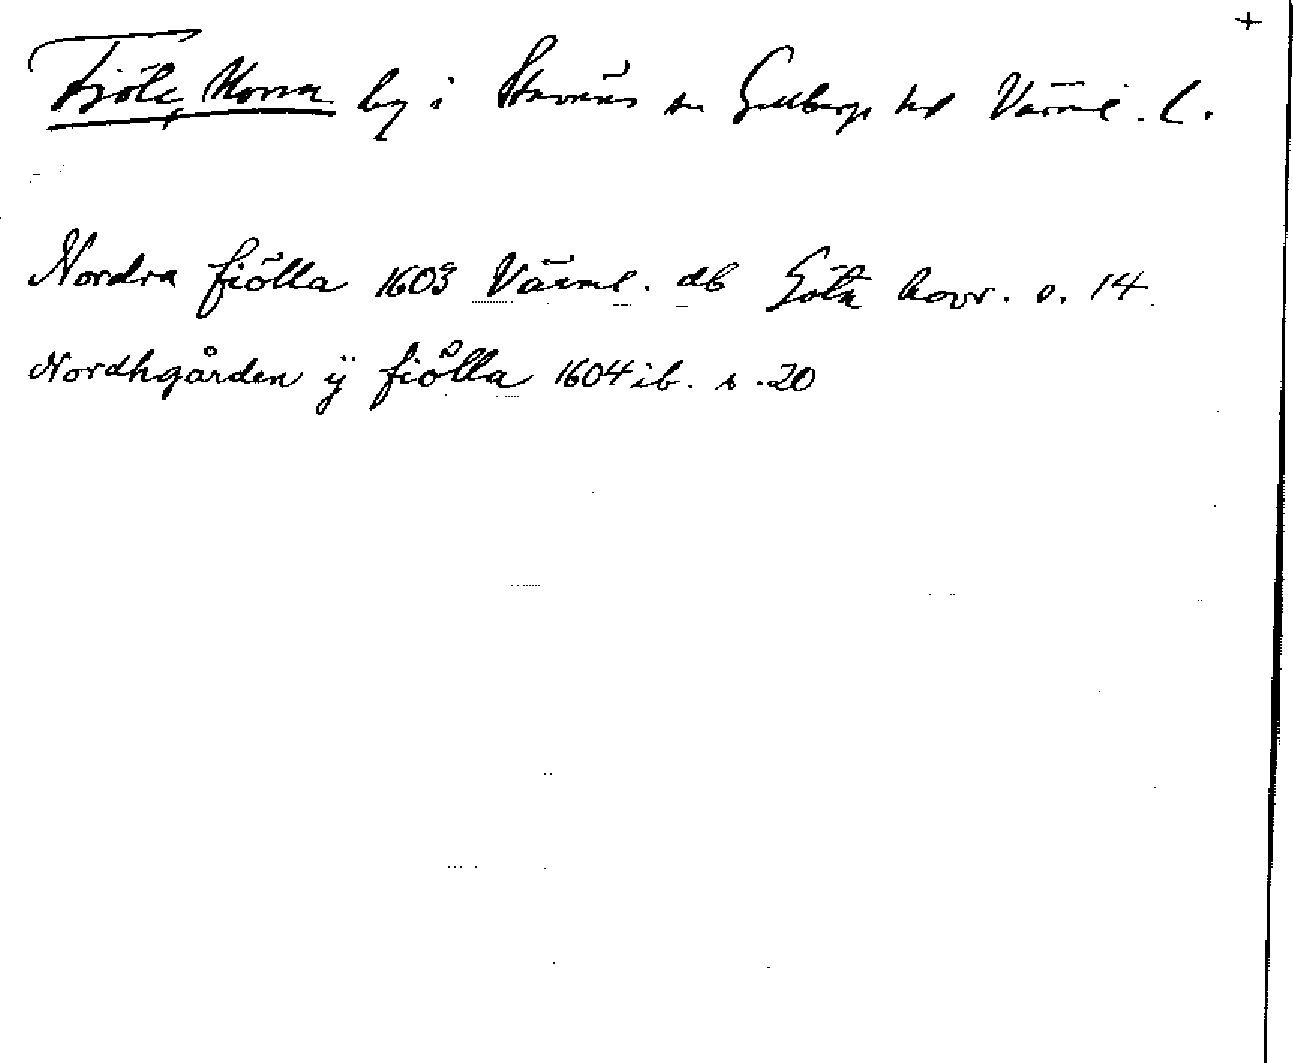 +
Fjöle, Norra by i Stavnäs sn Gillbergs hd Värml. l.
Nordra fiölla 1603 Värml. db Göta hovr. s. 14
Nordhgården ÿ fiölla 1604 ib. s. 20